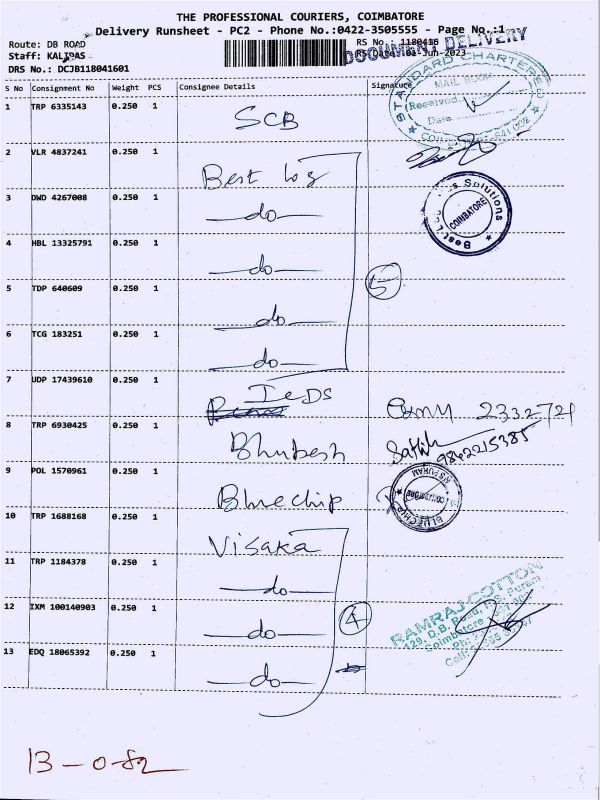 THE PROFESSIONAL COURIERS, COIMBATORE
Delivery Runsheet - PC2 - Phone No.:0422-3505555 - Page No.:1
Route: DB ROAD
RS No.: 1180416
DOCUMENT DELIVERY
Staff: KALIDAS
RS Date: 01-Jun-2023
DRS No.: DCJB118041601
S No Consignment No Weight PCS Consignee Details Signature
STANDARD CHARTERED
MAIL ROOM
Received
Date
1 TRP 6335143 0.250 1 SCB
2 VLR 4837241 0.250 1 Best log
3 DWD 4267008 0.250 1 do
Solutions
COIMBATORE
Best
4 HBL 13325791 0.250 1 do
5
5 TDP 640609 0.250 1 do
6 TCG 183251 0.250 1 do
7 UDP 17439610 0.250 1 IeDS
2332721
8 TRP 6930425 0.250 1 Bhubesh
Sathish
9842215385
9 POL 1570961 0.250 1 Bluechip
BLUECHIP
RS PURAM
10 TRP 1688168 0.250 1 Visaka
11 TRP 1184378 0.250 1 do
12 IXM 100140903 0.250 1 do
4
RAMRAJ COTTON
129, D.B. Road, R.S. Puram
Coimbatore
13 EDQ 18065392 0.250 1 do
13-0-82